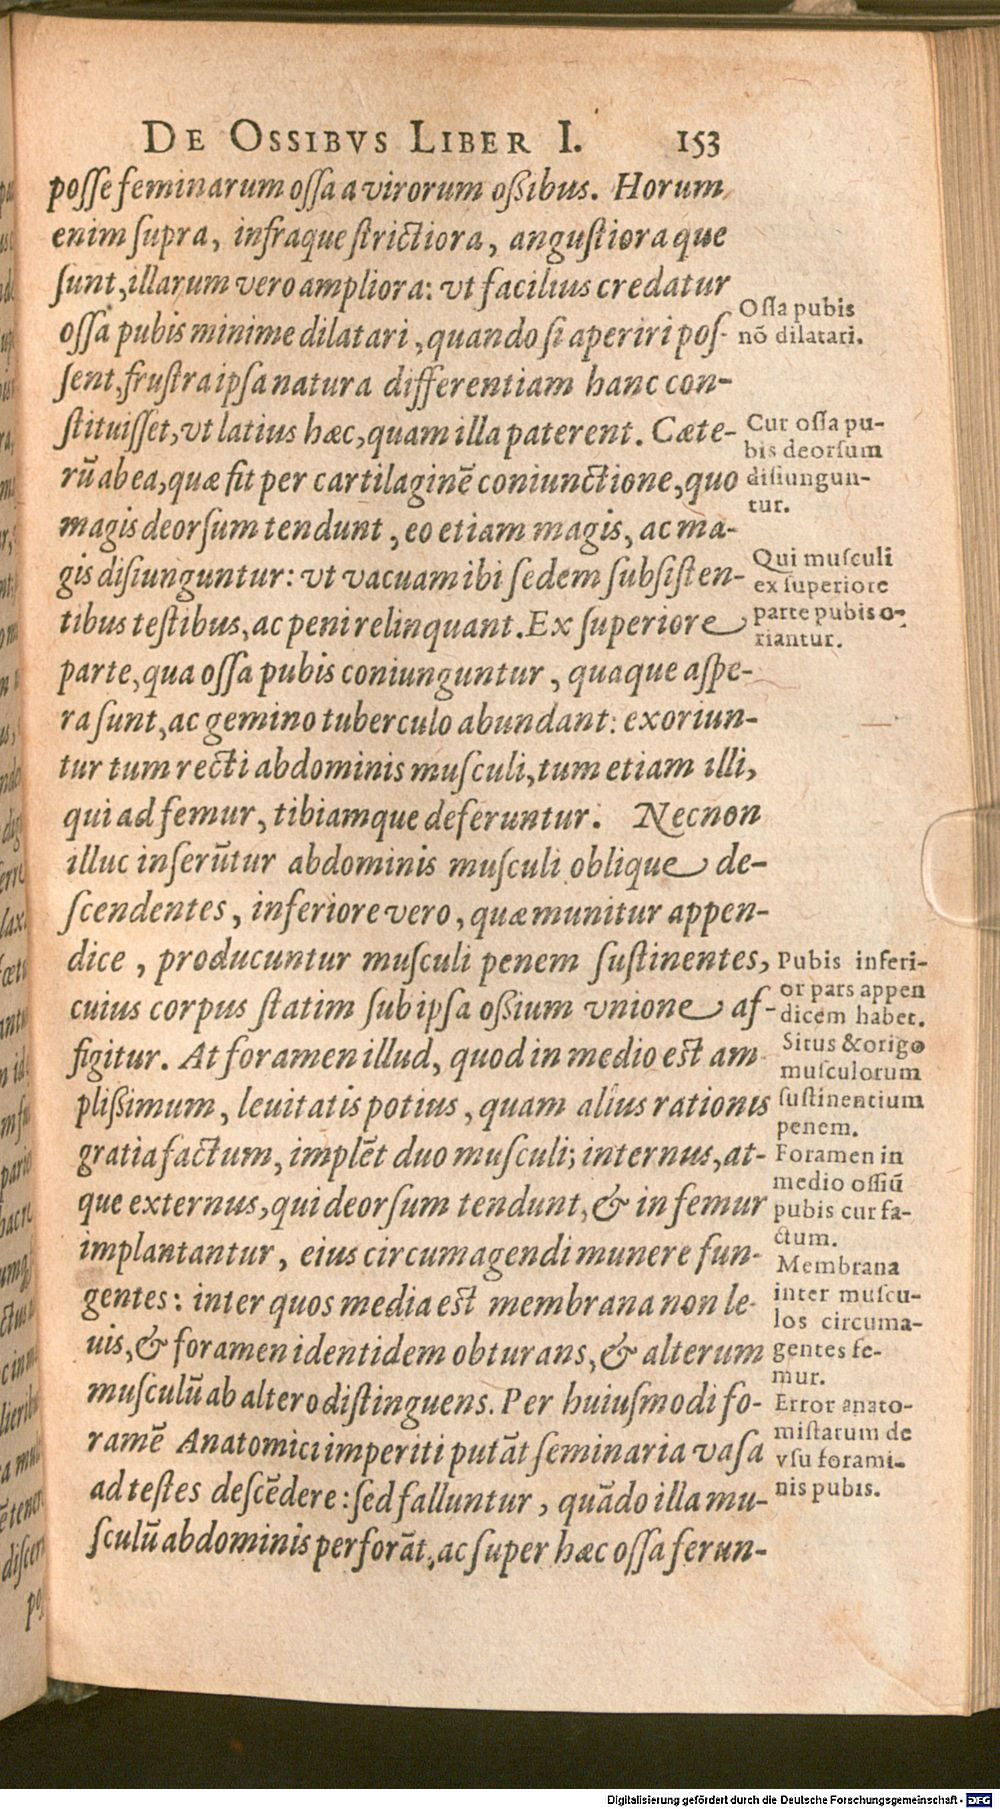 DE OSSIBVS LIBER I. 153
posse feminarum ossa a virorum oßibus. Horum
enim supra, infraque strictiora, angustiora que
sunt, illarum vero ampliora: vt facilius credatur
ossa pubis minime dilatari, quando si aperiri pos-
sent, frustra ipsa natura differentiam hanc con-
stituisset, vt latius hæc, quam illa paterent. Cæte-
rũ ab ea, quæ fit per cartilaginẽ coniunctione, quo
magis deorsum tendunt, eo etiam magis, ac ma-
gis disiunguntur: vt vacuam ibi sedem subsisten-
tibus testibus, ac peni relinquant. Ex superiore
parte, qua ossa pubis coniunguntur, quaque aspe-
ra sunt, ac gemino tuberculo abundant: exoriun-
tur tum recti abdominis musculi, tum etiam illi,
qui ad femur, tibiamque deferuntur. Necnon
illuc inserũtur abdominis musculi oblique de-
scendentes, inferiore vero, quæ munitur appen-
dice, producuntur musculi penem sustinentes,
cuius corpus statim sub ipsa oßium vnione af-
figitur. At foramen illud, quod in medio est am
plißimum, leuitatis potius, quam alius rationis
gratia factum, implẽt duo musculi; internus, at-
que externus, qui deorsum tendunt, & in femur
implantantur, eius circumagendi munere fun-
gentes: inter quos media est membrana non le-
uis, & foramen identidem obturans, & alterum
musculũ ab altero distinguens. Per huiusmodi fo-
ramẽ Anatomici imperiti putãt seminaria vasa
ad testes descẽdere: sed falluntur, quãdo illa mu-
sculũ abdominis perforãt, ac super hæc ossa ferun-
Ossa pubis
nõ dilatari.
Cur ossa pu-
bis deorsum
disiungun-
tur.
Qui musculi
ex superiore
parte pubis o-
riantur.
Pubis inferi-
or pars appen
dicem habet.
Situs & origo
musculorum
sustinentium
penem.
Foramen in
medio ossiũ
pubis cur fa-
ctum.
Membrana
inter muscu-
los circuma-
gentes fe-
mur.
Error anato-
mistarum de
vsu forami-
nis pubis.
Digitalisierung gefördert durch die Deutsche Forschungsgemeinschaft - DFG